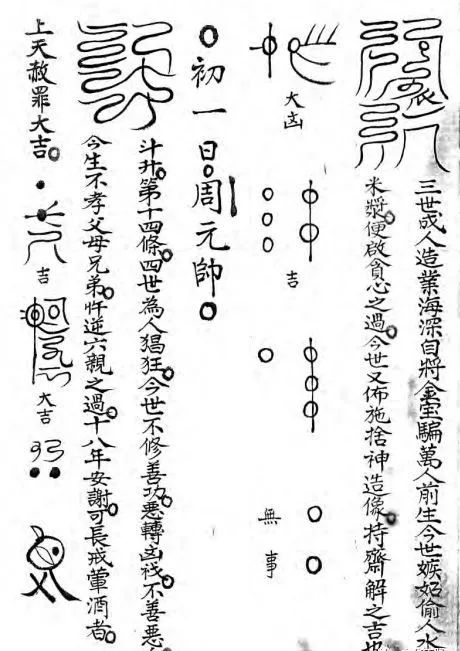 三世成人造業海深自將金宝騙萬人前生今世嫉妬偷人水
米漿便啟貪心之過今世又佈施捨神造像持齋解之吉也
大凶
吉
無事
初一日周元帥
斗升第十四條四世為人猖狂今世不修善功悪轉凶不善悪
今生不孝父母兄弟忤逆六親之過十八年安謝可長戒葷酒者
上天赦罪大吉
吉
大吉